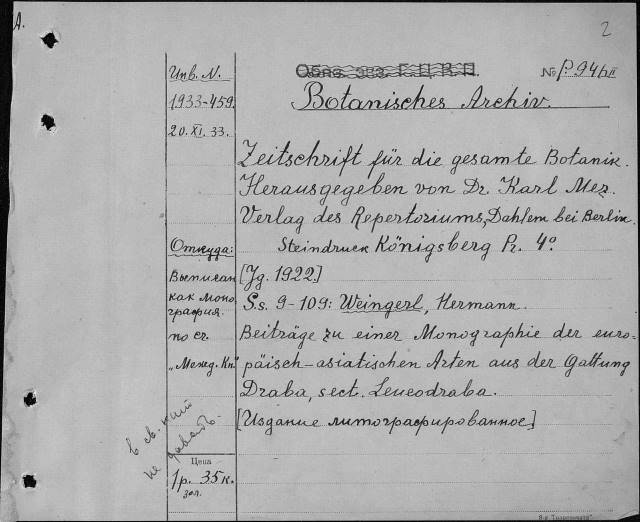 A.
2
Инв. N.
1933-459.
20. XI. 33.
№ P. 946 II
Botanisches Archiv.
Zeitschrift für die gesamte Botanik.
Herausgegeben von Dr. Karl Mez.
Verlag des Repertoriums, Dahlem bei Berlin.
Steindruck Königsberg Pr. 4°.
Откуда:
Выписан
как моно-
графия.
по сч.
„Межд. Кн."
[Jg. 1922.]
S.s. 9-109: Weingerl, Hermann.
Beiträge zu einer Monographie der euro-
päisch-asiatischen Arten aus der Gattung
Draba, sect. Leucodraba.
[Издание литографированное]
в св. кат
не давать.
Цена
1 р. 35 к.
зол.